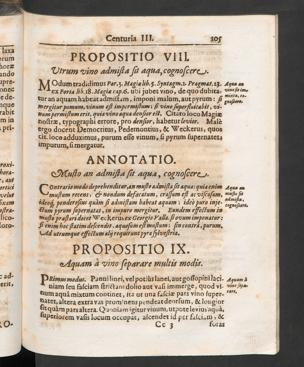 Centuria III. 205
PROPOSITIO VIII.
Utrum vino admista sit aqua, cognoscere.
MOdum tradidimus Par. 3. Magia lib. 5. Syntagm. 2. Pragmat. 13.
ex Porta lib. 18. Magia cap. 6. ubi jubet vino, de quo dubita-
tur an aquam habeat admistam, imponi malum, aut pyrum: si
mergitur pomum, vinum est
vinum permistum erit, quia vino aqua densior est. Citato loco Magiæ
nostræ, typographi errore, pro densior, habetur levior. Malè
ergo docent Democritus, Pedemontius, & Weckerus, quos
cit. loco adduximus, purum esse vinum, si pyrum supernatans
impurum, si mergatur.
Aqua an
vino sit im-
mista, co-
gnoscere.
ANNOTATIO.
Musto an admista sit aqua, cognoscere.
Contrario modo deprehenditur, an musto admista sit aqua: quia enim
mustum recens, & nondum defæcatum, crassum est ac viscosum,
ideoq, ponderosius quàm si admistam habeat aquam: ideò puro inje-
ctum pyrum supernatat, in impuro mergitur. Eundem effectum in
musto præstari docet Weckerus ex Georgio
si enim hoc statim descendet, aquosum est mustum: sin contrà, purum.
Ad utrumque effectum aliqui requirunt pyra silvestria.
Aqua an
musto sit
admista,
cognoscere.
PROPOSITIO IX.
Aquam à vino separare multis modis.
PRimus modus. Panni linei, vel potius lanei, aut gossipii laci-
niam seu fasciam strictam dolio aut vasi immerge, quod vi-
num aqua mixtum continet, ita ut una fasciæ pars vino super-
natet, altera extra vas prominens pendeat deorsum, & longior
sit quàm pars altera. Quoniam igitur vinum, utpote levius aquâ,
superiorem vasis locum occupat, ascendet id per fasciam, &
Aquam à
vino sepa-
rare.
Cc 3 foras